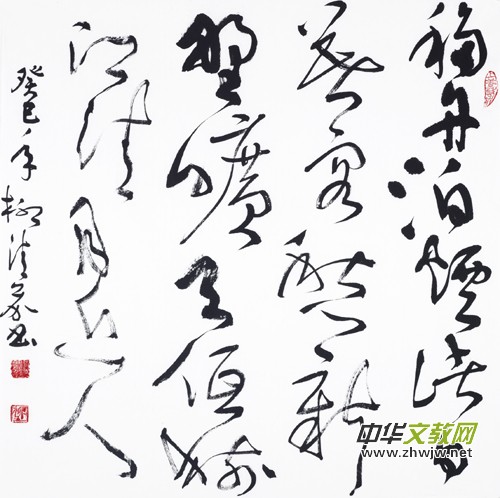 移舟泊煙渚日
暮客愁新
野曠天低樹
江清月近人
癸巳年柳清書
中华文教网
www.zhwjw.net